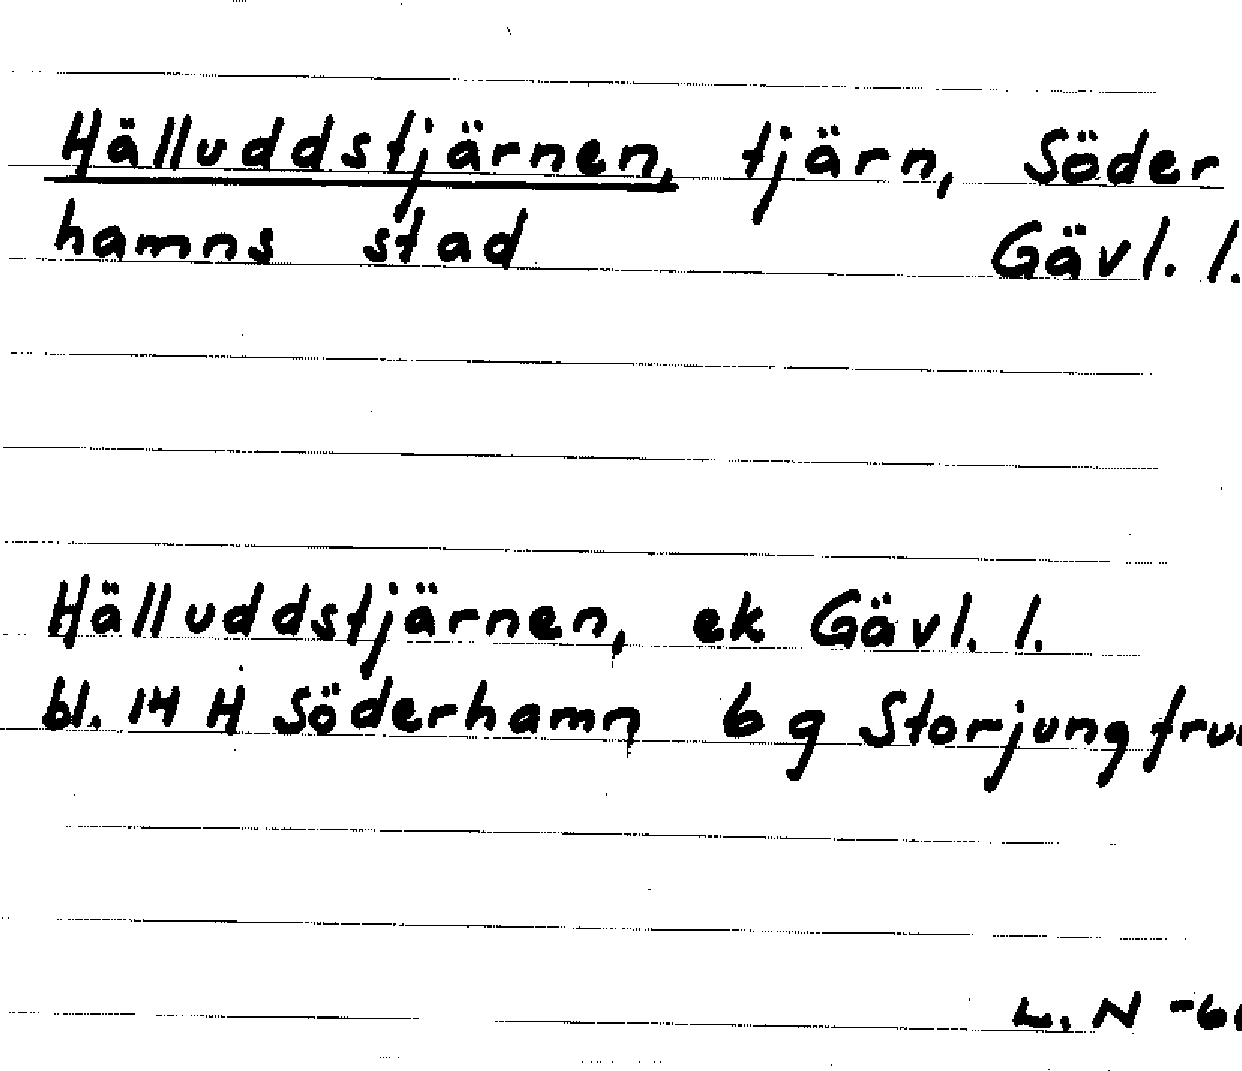 Hälluddstjärnen, tjärn, Söder
hamns stad Gävl. l.
Hälluddstjärnen, ek Gävl. l.
bl. 14 H Söderhamn 6 g
L. N